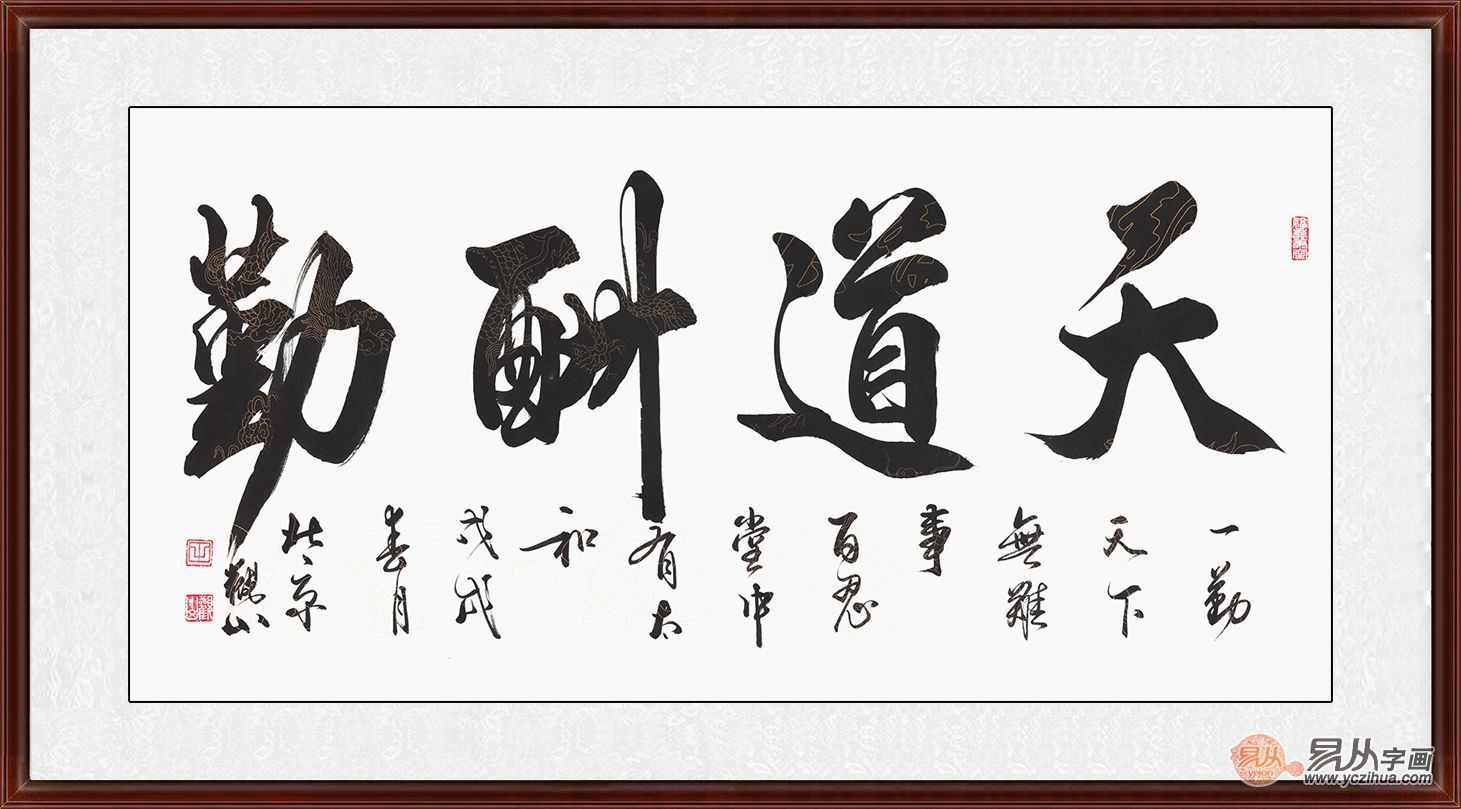 天道酬勤
一勤
天下
無難
事
百忍
堂中
有太
和
戊戌
春月
北京
觀山
易从字画
www.yczihua.com